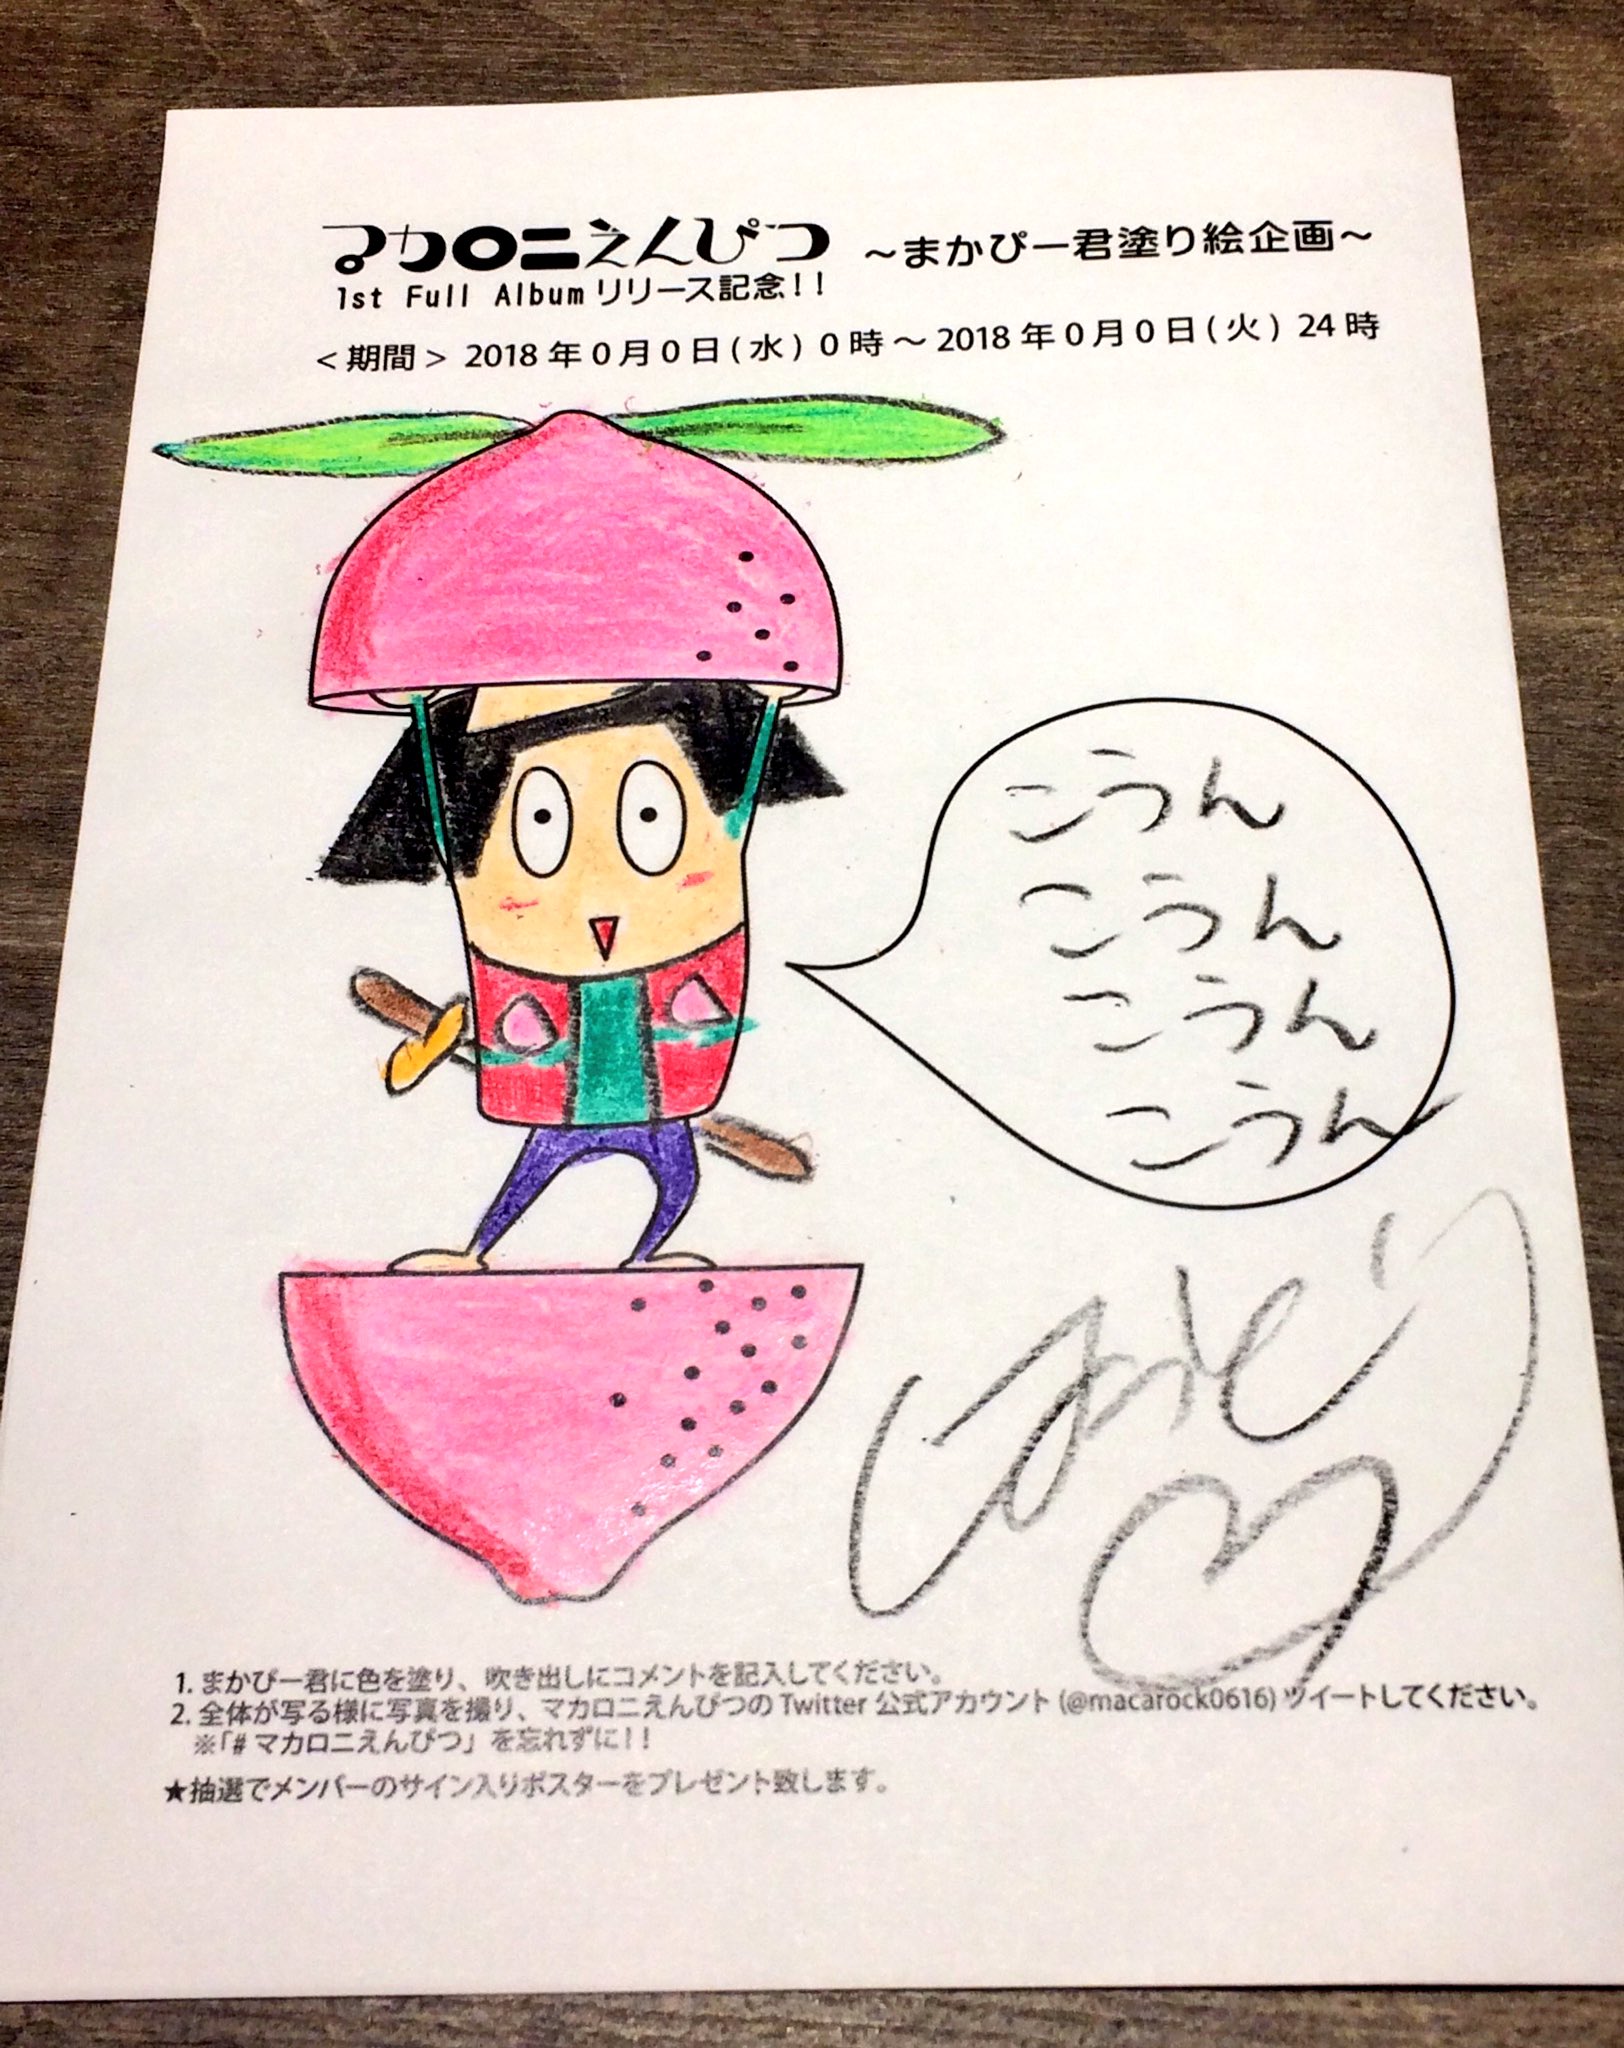 マカロニえんぴつ ~まかぴー君塗り絵企画~
1st Full Album リリース記念!!
<期間> 2018年0月0日(水)0時~2018年0月0日(火)24時
こうん
こうん
こうん
こうん
1. まかぴー君に色を塗り、吹き出しにコメントを記入してください。
2. 全体が写る様に写真を撮り、マカロニえんぴつの Twitter 公式アカウント (@macarock0616) ツイートしてください。
※「# マカロニえんぴつ」を忘れずに!!
★抽選でメンバーのサイン入りポスターをプレゼント致します。